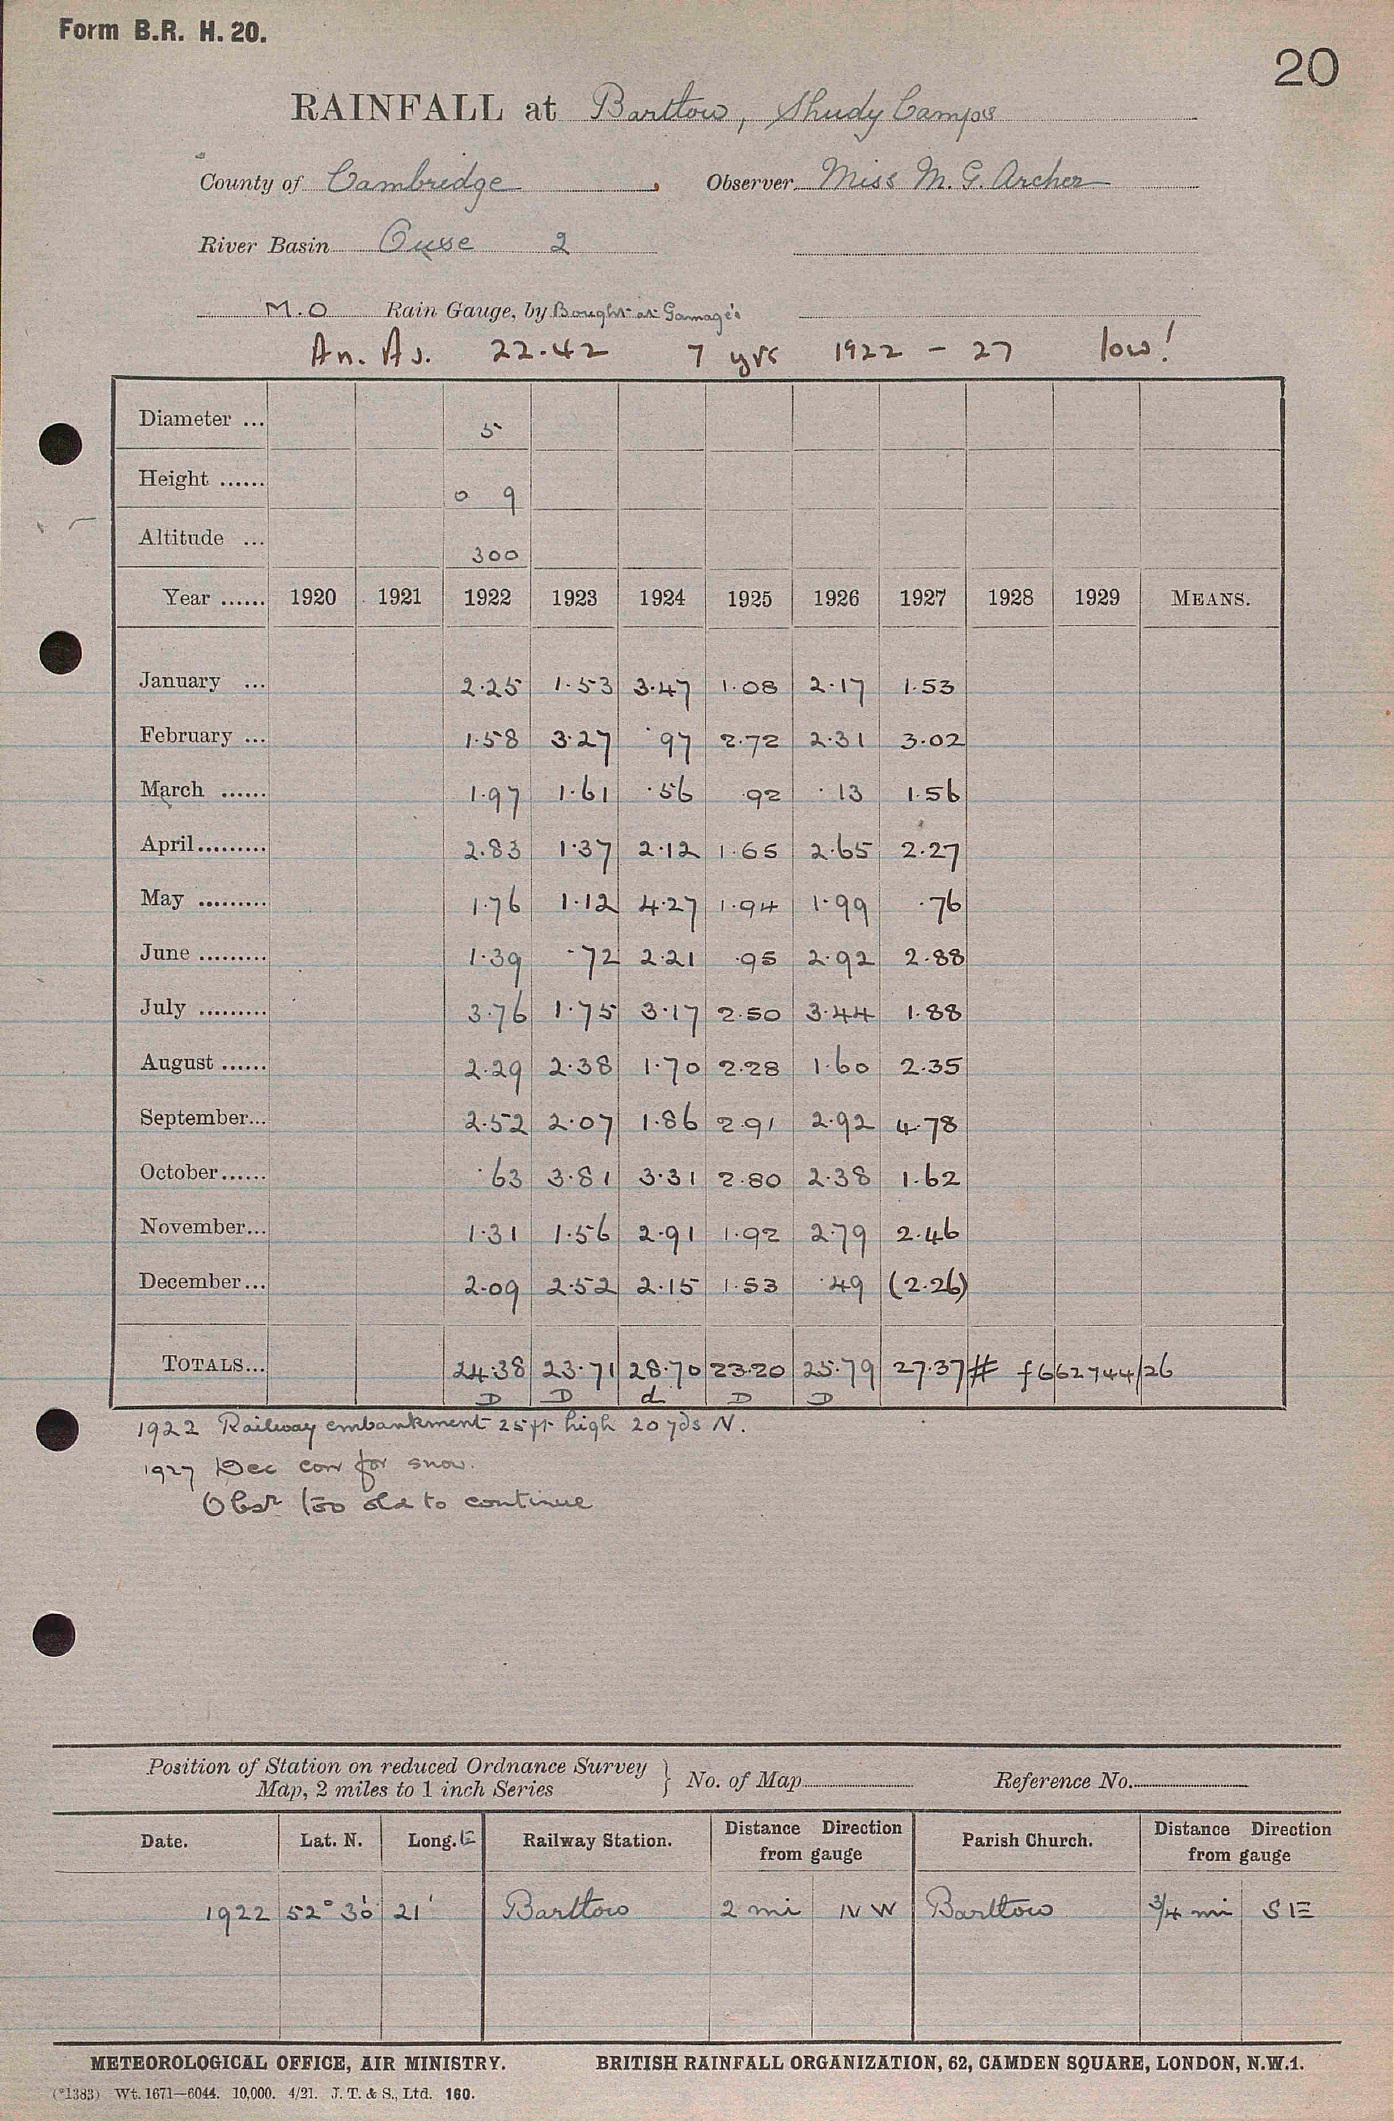 Form B.R. H. 20.
20
RAINFALL at Bartlow, Shudy Camps
County of Cambridge Observer Miss M. G. Archer
River Basin Ouse 2
M.O Rain Gauge, by Bought at Gamage's
An. Av. 22.42 7 yrs 1922 - 27 low!
Diameter ... 5
Height ...... 0 9
Altitude ... 300
Year ...... 1920 1921 1922 1923 1924 1925 1926 1927 1928 1929 MEANS.
January ... 2.25 1.53 3.47 1.08 2.17 1.53
February ... 1.58 3.27 .97 2.72 2.31 3.02
March ...... 1.97 1.61 .56 .92 .13 1.56
April......... 2.83 1.37 2.12 1.65 2.65 2.27
May ......... 1.76 1.12 4.27 1.94 1.99 .76
June ......... 1.39 .72 2.21 .95 2.92 2.88
July ......... 3.76 1.75 3.17 2.50 3.44 1.88
August ...... 2.29 2.38 1.70 2.28 1.60 2.35
September... 2.52 2.07 1.86 2.91 2.92 4.78
October...... .63 3.81 3.31 2.80 2.38 1.62
November... 1.31 1.56 2.91 1.92 2.79 2.46
December... 2.09 2.52 2.15 1.53 .49 (2.26)
TOTALS... 24.38 23.71 28.70 23.20 25.79 27.37 # f662744/26
D D d D D
1922 Railway embankment 25ft high 20 yds N.
1927 Dec corr for snow.
Obsr too old to continue
Position of Station on reduced Ordnance Survey
Map, 2 miles to 1 inch Series } No. of Map Reference No.
Date. Lat. N. Long. E Railway Station. Distance Direction from gauge Parish Church. Distance Direction from gauge
1922 52° 30' 21' Bartlow 2 mi NW Bartlow 3/4 mi SE
METEOROLOGICAL OFFICE, AIR MINISTRY. BRITISH RAINFALL ORGANIZATION, 62, CAMDEN SQUARE, LONDON, N.W.1.
(*1383) Wt. 1671—6044. 10,000. 4/21. J. T. & S., Ltd. 160.